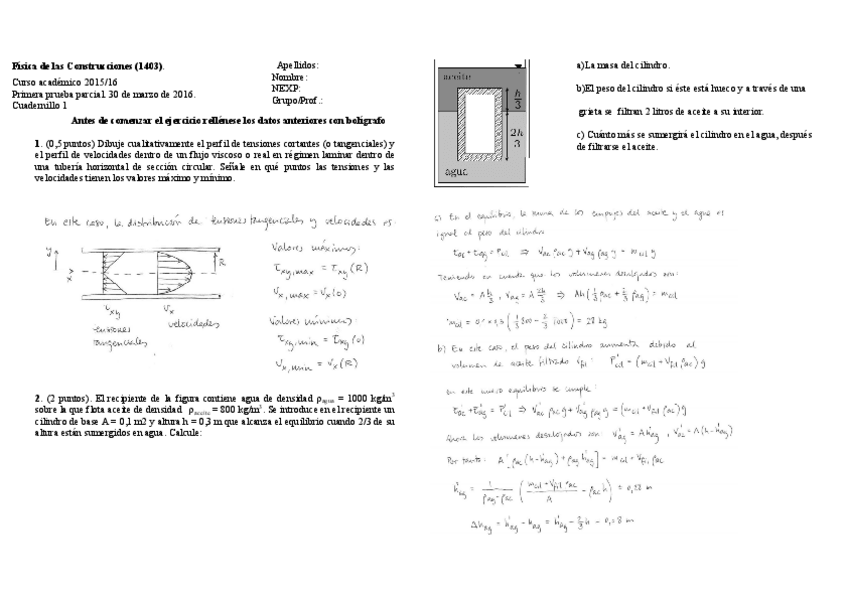 Física de las Construcciones (1403).
Curso académico 2015/16
Primera prueba parcial. 30 de marzo de 2016.
Cuadernillo 1
Apellidos:
Nombre:
NEXP:
Grupo/Prof.:
Antes de comenzar el ejercicio rellénese los datos anteriores con bolígrafo
1. (0,5 puntos) Dibuje cualitativamente el perfil de tensiones cortantes (o tangenciales) y
el perfil de velocidades dentro de un flujo viscoso o real en régimen laminar dentro de
una tubería horizontal de sección circular. Señale en qué puntos las tensiones y las
velocidades tienen los valores máximo y mínimo.
En este caso, la distribución de tensiones tangenciales y velocidades es:
y
x
R
τxy
tensiones
tangenciales
vx
velocidades
Valores máximos:
τxy,max = τxy(R)
vx,max = vx(0)
Valores mínimos:
τxy,min = τxy(0)
vx,min = vx(R)
2. (2 puntos). El recipiente de la figura contiene agua de densidad ρagua = 1000 kg/m³
sobre la que flota aceite de densidad ρaceite = 800 kg/m³. Se introduce en el recipiente un
cilindro de base A = 0,1 m2 y altura h = 0,3 m que alcanza el equilibrio cuando 2/3 de su
altura están sumergidos en agua. Calcule:
aceite
h
3
2h
3
agua
a)La masa del cilindro.
b)El peso del cilindro si éste está hueco y a través de una
grieta se filtran 2 litros de aceite a su interior.
c) Cuánto más se sumergirá el cilindro en el agua, después
de filtrarse el aceite.
a) En el equilibrio, la suma de los empujes del aceite y el agua es
igual al peso del cilindro
Eac + Eag = Pcil ⇒ Vac ρac g + Vag ρag g = mcil g
Teniendo en cuenta que los volúmenes desalojados son:
Vac = A h/3, Vag = A 2h/3 ⇒ Ah(1/3 ρac + 2/3 ρag) = mcil
mcil = 0,1 × 0,3 (1/3 800 + 2/3 1000) = 28 kg
b) En este caso, el peso del cilindro aumenta debido al
volumen de aceite filtrado Vfil: P'cil = (mcil + Vfil ρac) g
En este nuevo equilibrio se cumple:
E'ac + E'ag = P'cil ⇒ V'ac ρac g + V'ag ρag g = (mcil + Vfil ρac) g
Ahora los volúmenes desalojados son: V'ag = A h'ag, V'ac = A (h - h'ag)
Por tanto: A [ρac (h - h'ag) + ρag h'ag] = mcil + Vfil ρac
h'ag = 1/(ρag - ρac) ((mcil + Vfil ρac)/A - ρac h) = 0,28 m
Δhag = h'ag - hag = h'ag - 2/3 h = 0,08 m